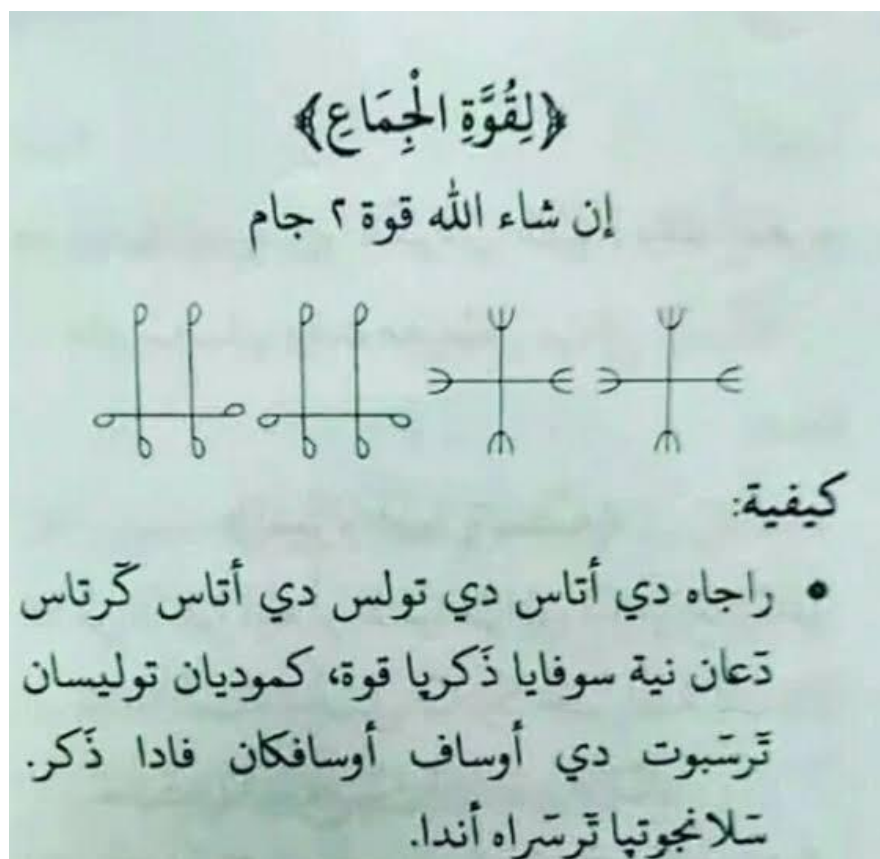 ﴿لِقُوَّةِ الْجِمَاعِ﴾
إن شاء الله قوة ٢ جام
كيفية:
• راجاه دي أتاس دي تولس دي أتاس كٓرتاس
دٓعان نية سوفايا ذَكريا قوة، كموديان توليسان
تٓرسٓبوت دي أوساف أوسافكان فادا ذَكر.
سٓلانجوتيا تٓرسٓراه أندا.